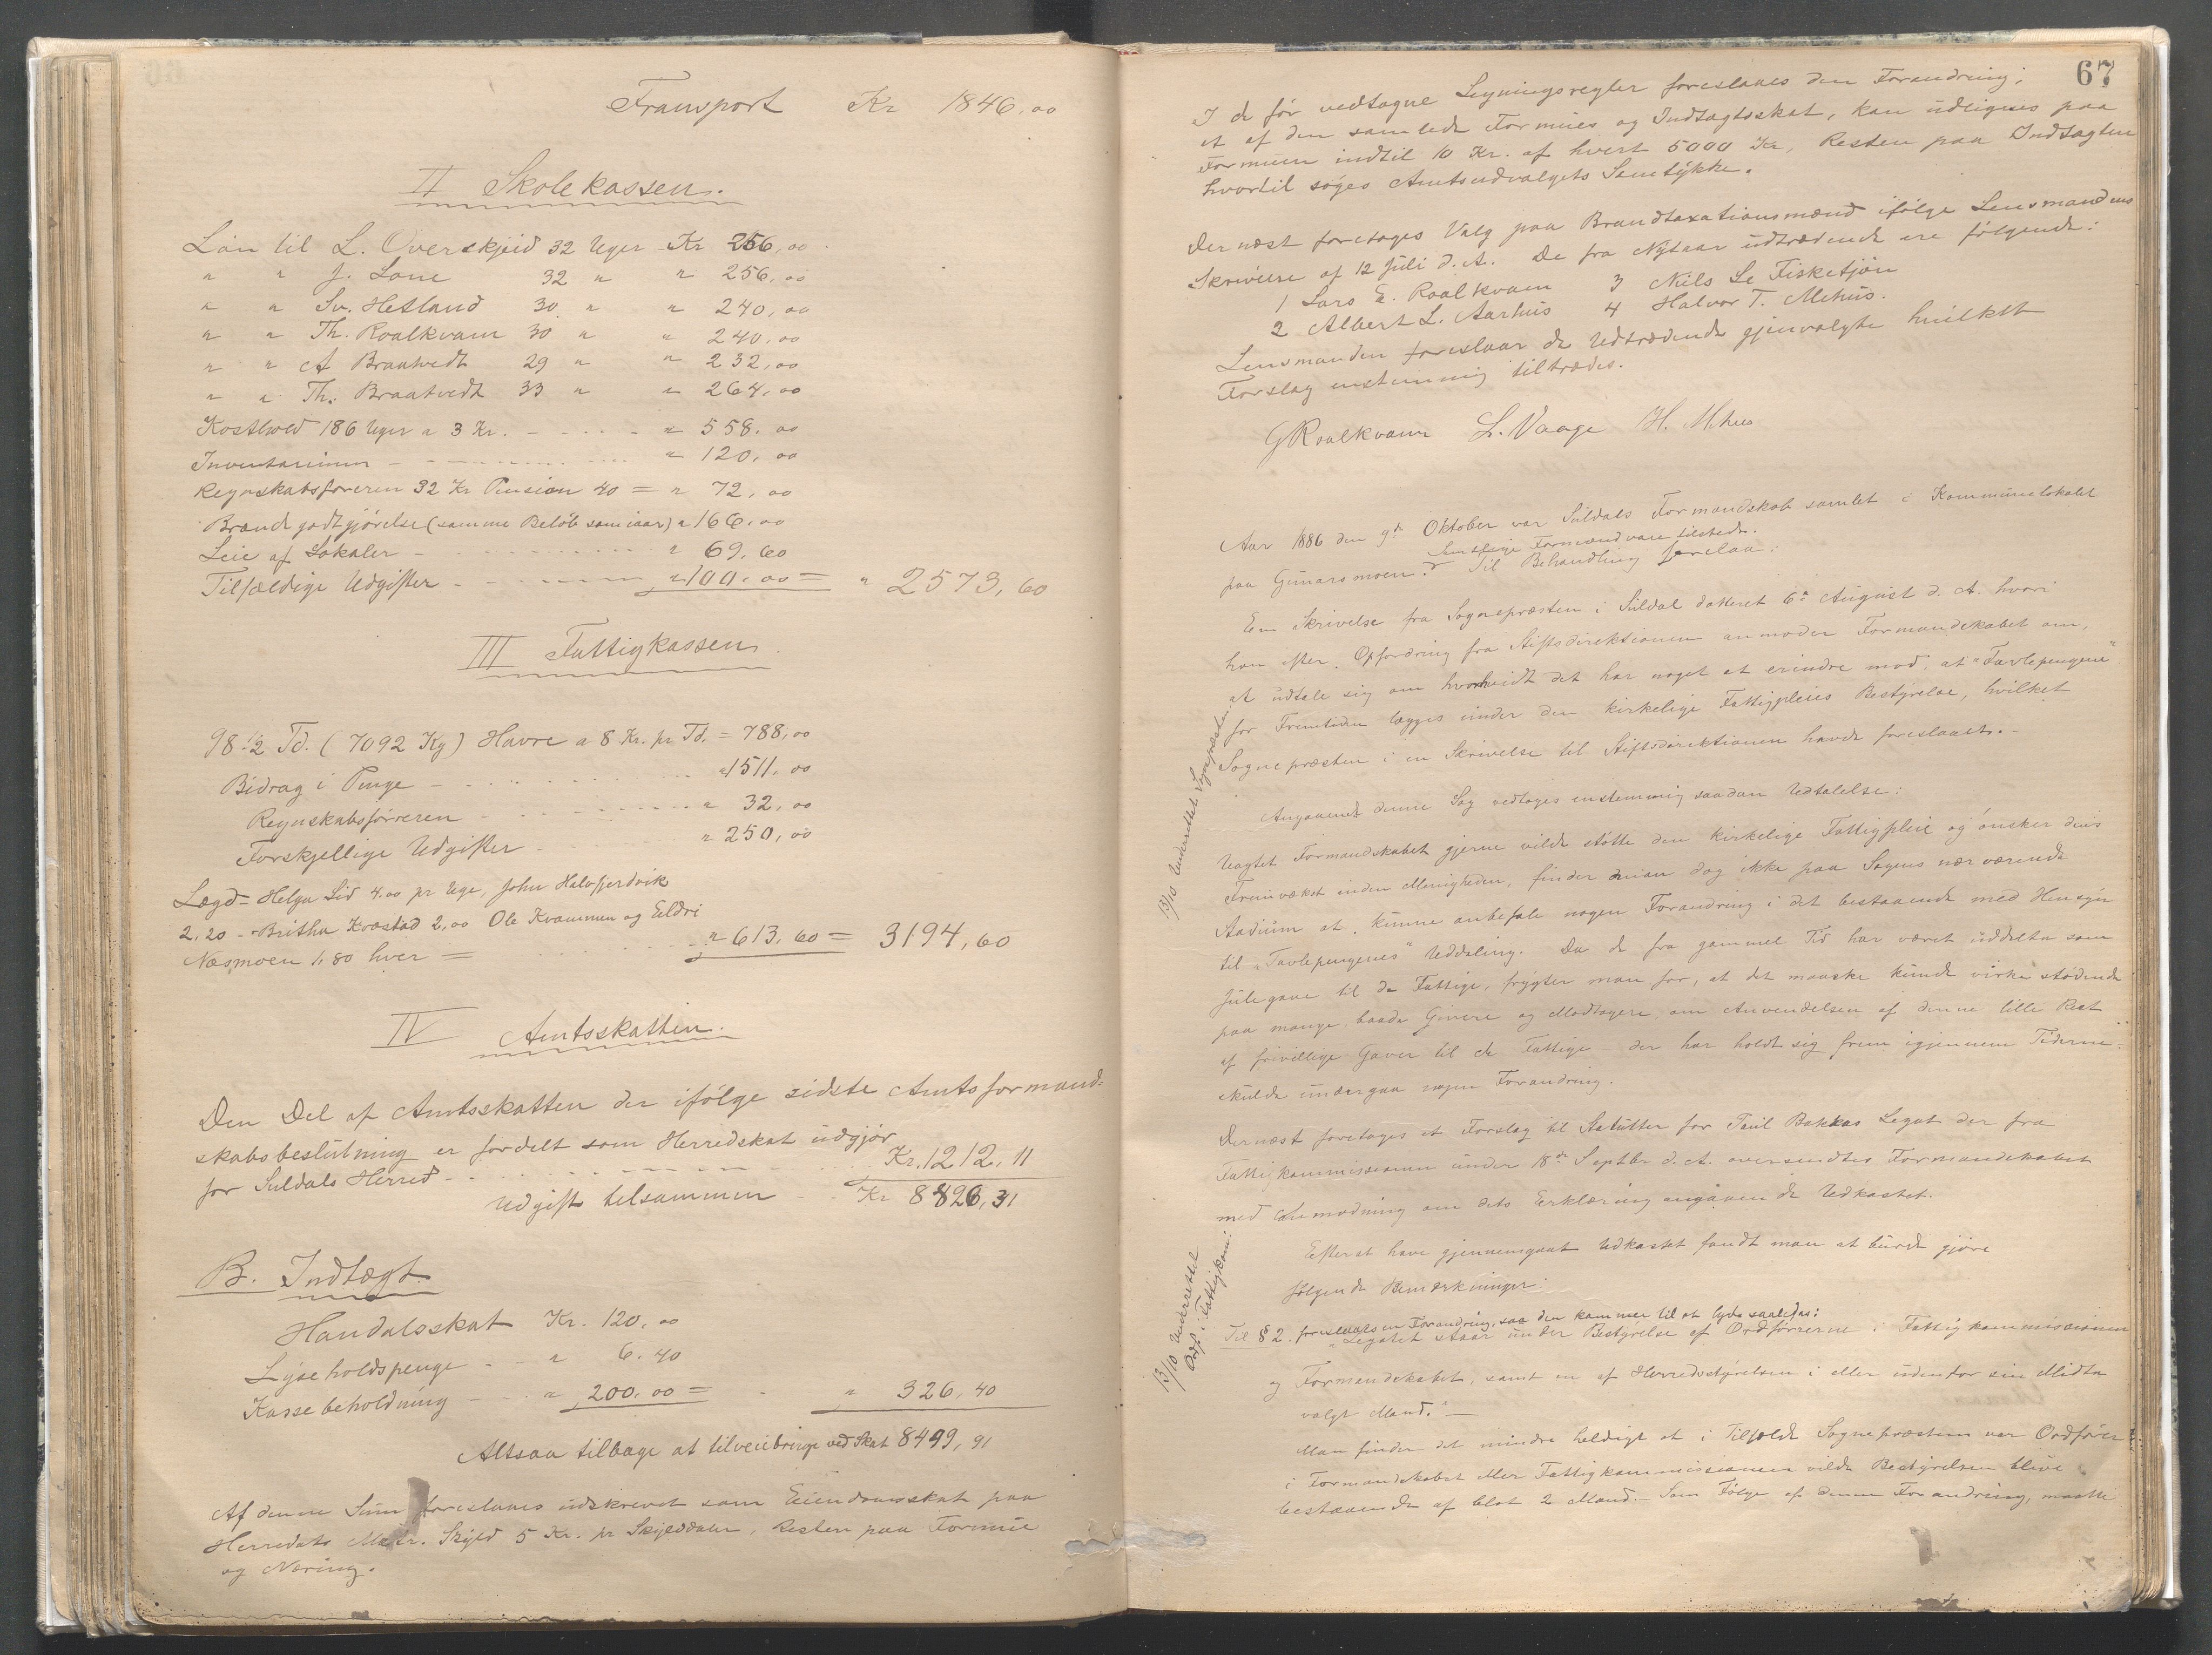 Transport Kr 1846,00
II Skolekassen.
Løn til L. Overskjeid 32 Uger Kr 256,00
" " J. Lone 32 " " 256,00
" " Sv. Hetland 30 " " 240,00
" " Th. Roalkvam 30 " " 240,00
" " A Braatvedt 29 " " 232,00
" " Th. Braatvedt 33 " " 264,00
Kosthold 186 Uger a 3 Kr. - - - - " 558,00
Inventarium - - - " 120,00
Regnskabsføreren 32 Kr Pension 40 = " 72,00
Brændegodtgjørelse (samme Beløb som iaar) " 166,00
Leie af Lokaler - - - " 69,60
Tilfældige Udgifter - - - " 100,00 = " 2573,60
III Fattigkassen.
98 1/2 Td. (7092 Kg) Havre a 8 Kr. pr Td. = 788,00
Bidrag i Penge - - - "1511,00
Regnskabsføreren - - - " 32,00
Forskjellige Udgifter - - - " 250,00
Lægd - Helga Lid 4,00 pr Uge, John Halvfjerdvik
2,20 - Britha Krøstad 2,00 Ole Kvammen og Eldri
Næsmoen 1,80 hver = " 613,60 = 3194,60
IV Amtsskatten.
Den Del af Amtsskatten der ifølge sidste Amtsformand-
skabsbeslutning er fordelt som Herredskat udgjør
for Suldals Herred - - - Kr. 1212,11
Udgift tilsammen - - Kr 8826,31
B. Indtægt
Handelsskat Kr. 120,00
Lyseholdspenge - - " 6,40
Kassebeholdning - - " 200,00 = - " 326,40
Altsaa tilbage at tilveiebringe ved Skat 8499,91
Af denne Sum foreslaaes udskrevet som Eiendomsskat paa
Herredets Matr. Skyld 5 Kr. pr Skylddaler, Resten paa Formue
og Næring.
67
I de før vedtagne Ligningsregler foreslaaes den Forandring;
at af den samlede Formues og Indtægtsskat, kan udlignes paa
Formuen indtil 10 Kr. af hvert 5000 Kr, Resten paa Indtægten
hvortil søges Amtsudvalgets Samtykke.
Dernæst foretages Valg paa Brandtaxationsmænd ifølge Lensmandens
Skrivelse af 12 Juli d. A. De fra Nytaar udtrædende ere følgende:
1 Lars E. Roalkvam 3 Nils L. Fisketjøn
2 Albert L. Aarhus 4 Halvor T. Mehus.
Lensmanden foreslaar de Udtrædende gjenvalgte hvilket
Forslag enstemmig tiltrædes.
G Roalkvam L. Vaage H. Mehus
Aar 1886 den 9de Oktober var Suldals Formandskab samlet i Kommunelokalet
Samtlige Formænd vare tilstede.
paa Gunarsmoen. Til Behandling forelaa:
En Skrivelse fra Sognepræsten i Suldal dateret 6te August d. A. hvori
han efter Opfordring fra Stiftsdirektionen anmoder Formandskabet om,
at udtale sig om hvorvidt det har noget at erindre mod, at "Tavlepengene"
for Fremtiden lægges under den kirkelige Fattigpleies Bestyrelse, hvilket
Sognepræsten i en Skrivelse til Stiftsdirektionen havde foreslaaet. -
13/10 Underrettet Sognepræsten
Angaaende denne Sag vedtoges enstemmig saadan Udtalelse:
Uagtet Formandskabet gjerne vilde støtte den kirkelige Fattigpleie og ønsker dens
Fremvækst inden Menigheden, finder man dog ikke paa Sagens nærværende
Stadium at kunne anbefale nogen Forandring i det bestaaende med Hensyn
til "Tavlepengenes" Uddeling. Da de fra gammel Tid har været uddelte som
Julegave til de Fattige, frygter man for, at det maaske kunde virke stødende
paa mange, baade Givere og Modtagere, om Anvendelsen af denne lille Rest
af frivillige Gaver til de Fattige - der har holdt sig frem igjennem Tiderne -
skulde undergaa nogen Forandring.
Dernæst foretoges et Forslag til Statutter for Poul Bakkas Legat der fra
Fattigkommissionen under 18de Septbr d. A. oversendtes Formandskabet
med Anmodning om dets Erklæring angaaende Udkastet.
13/10 Underrettet
Ordf. i Fattigkom:
Efter at have gjennemgaaet Udkastet fandt man at burde gjøre
følgende Bemærkninger:
Til § 2. foreslaaes en Forandring, saa den kommer til at lyde saaledes:
"Legatet staar under Bestyrelse af Ordførerne i Fattigkommissionen
og Formandskabet, samt en af Herredsstyrelsen i eller udenfor sin Midte
valgt Mand." -
Man finder det mindre heldigt at i Tilfælde Sognepræsten var Ordfører
i Formandskabet eller Fattigkommissionen vilde Bestyrelsen blive
bestaaende af blot 2 Mænd. - Som Følge af denne Forandring, maatte